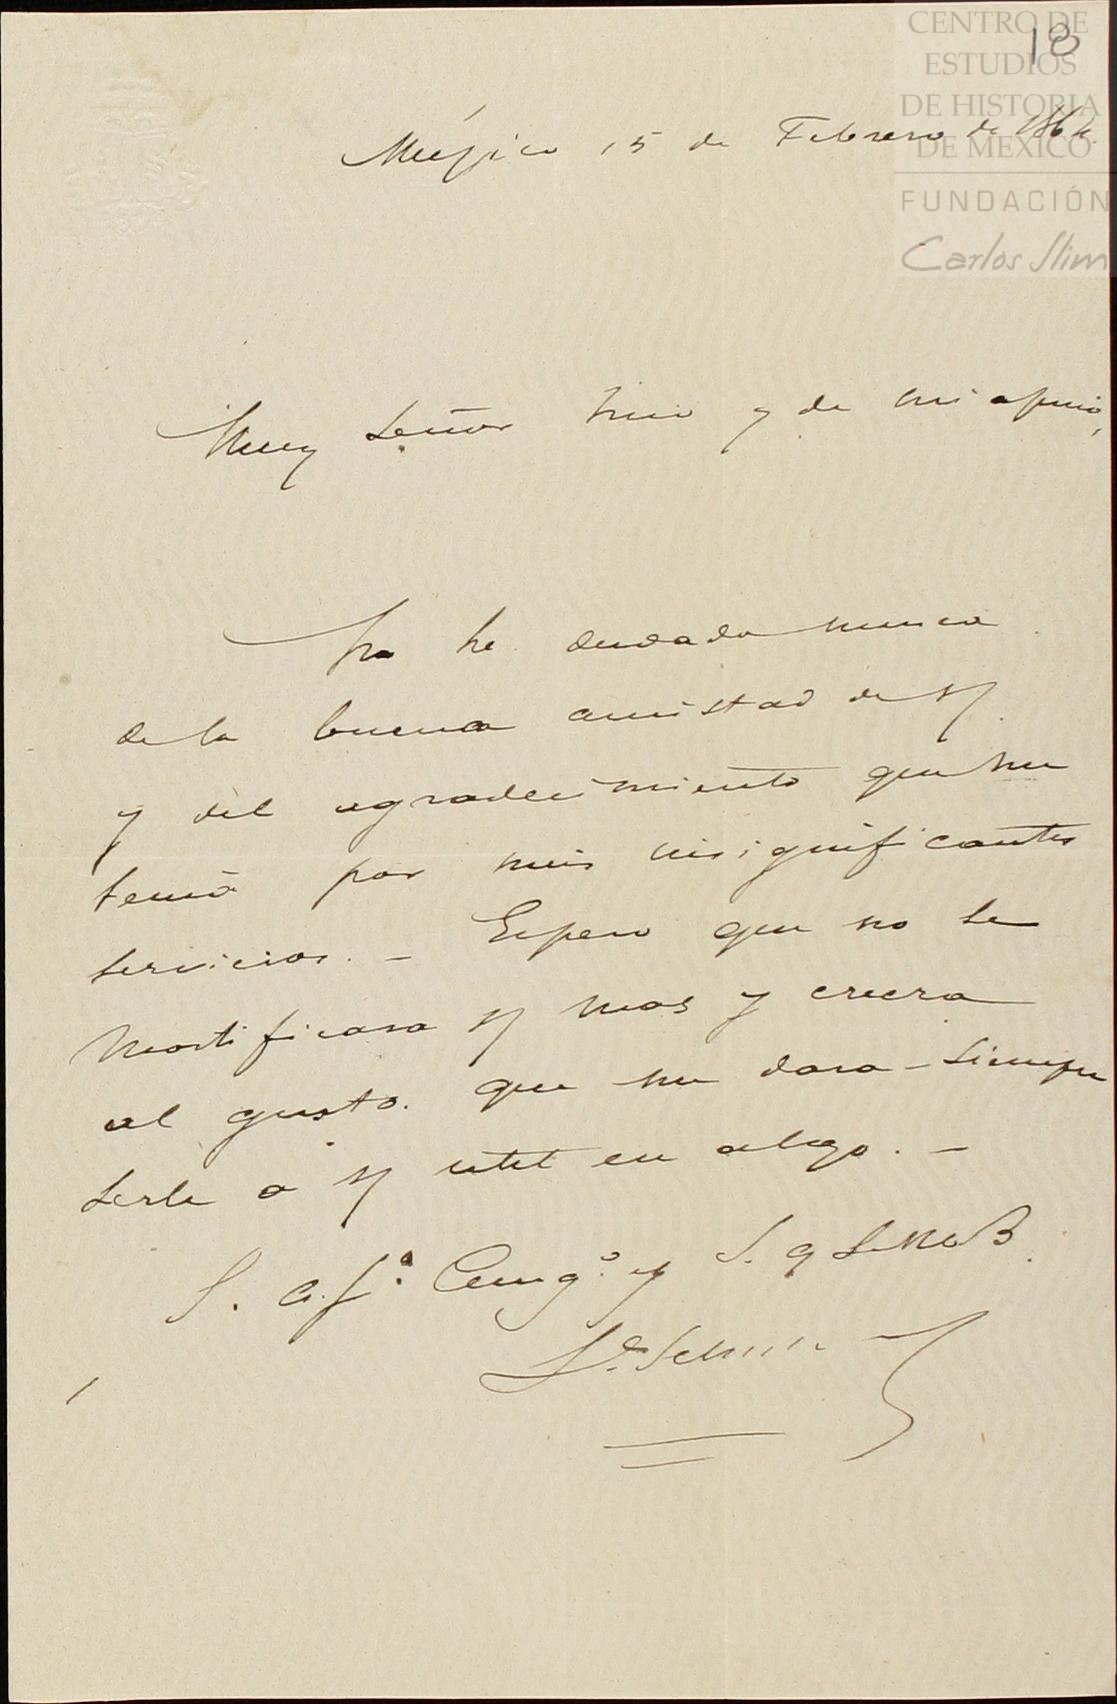 CENTRO DE
ESTUDIOS
DE HISTORIA
DE MEXICO
FUNDACIÓN
Carlos Slim
18
Mégico 15 de Febrero de 186
Muy Señor mio y de mi apreio,
No he dudado nunca
de la buena amistad de V
y del agradecimiento que me
tenia por mis insignificantes
servicios. - Espero que no se
mortificara V mas y creera
al gusto. que me dara - siempre
serle a V util en algo. -
S. af.º Amigº. y S. q S M B.